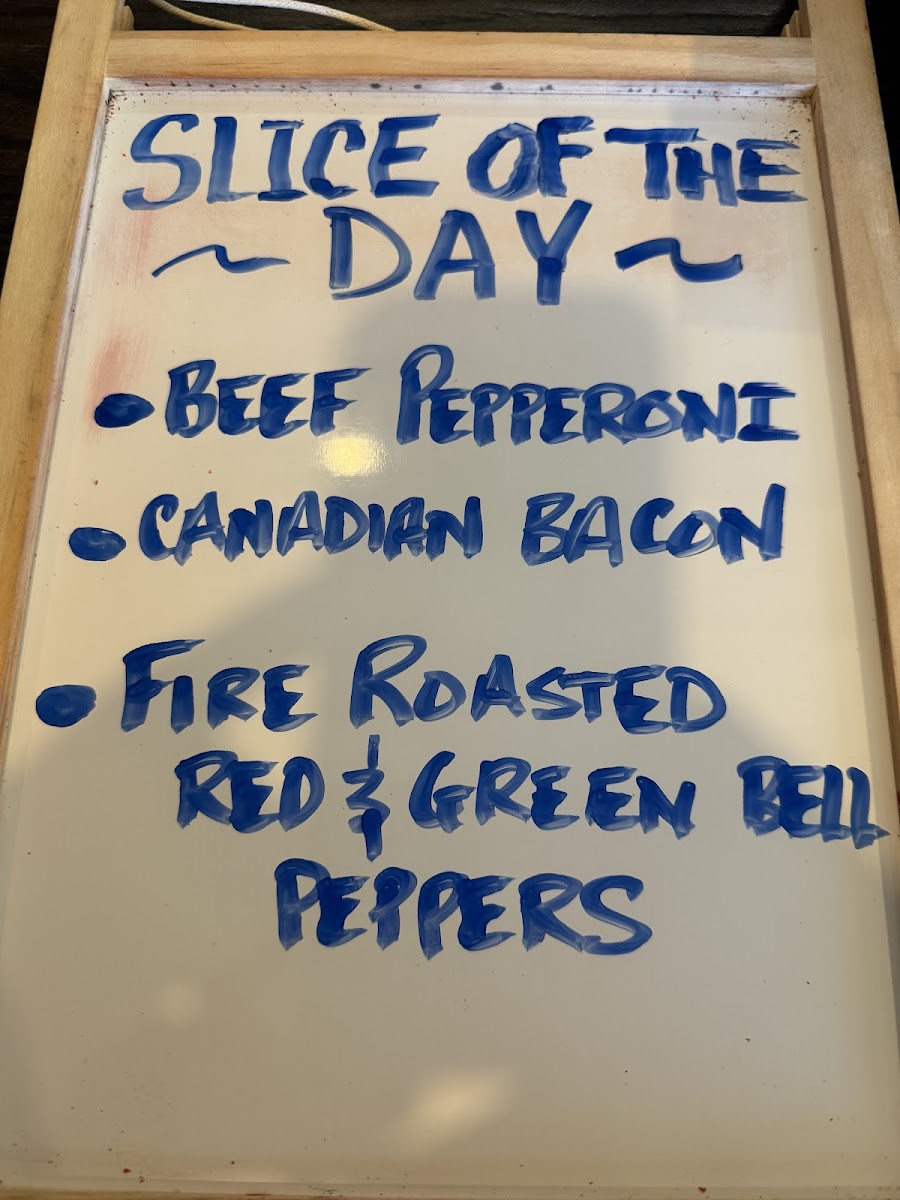 SLICE OF THE
~ DAY ~
• BEEF PEPPERONI
• CANADIAN BACON
• FIRE ROASTED
RED & GREEN BELL
PEPPERS